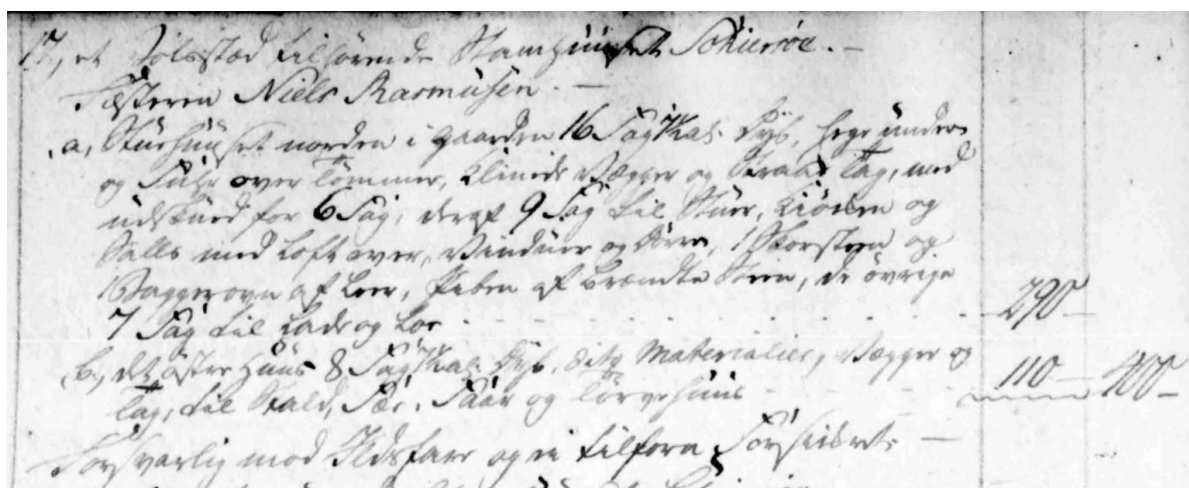 17, et Boelsstæd tilhørende Stamhuuset Schierøe. -
Fæsteren Niels Rasmusen. -
a, Stuehuuset norden i gaarden 16 Fag 7 Kal. dyb, Eege under
og Fuhr over Tømmer, kliinede Vægger og Straae Tag, med
udskued for 6 Fag, deraf 9 Fag til Stuer, Kiøken og
Salls med Loft over, Vinduer og Dørre, 1 Skorsteen og
1 Baggerovn af Leer, Piben af brændte Steen, de øvrige
7 Fag til Lade og Loe - - - 290 -
b, det østre Huus 8 Fag 7 Kal. dyb, dito Materialier, Vægger og
Tag, til Stald, Fæe, Faar og Tørvehuus - 110 - 400 -
Forsvarlig mod Ildsfare og ei tilforn Forsikkret -